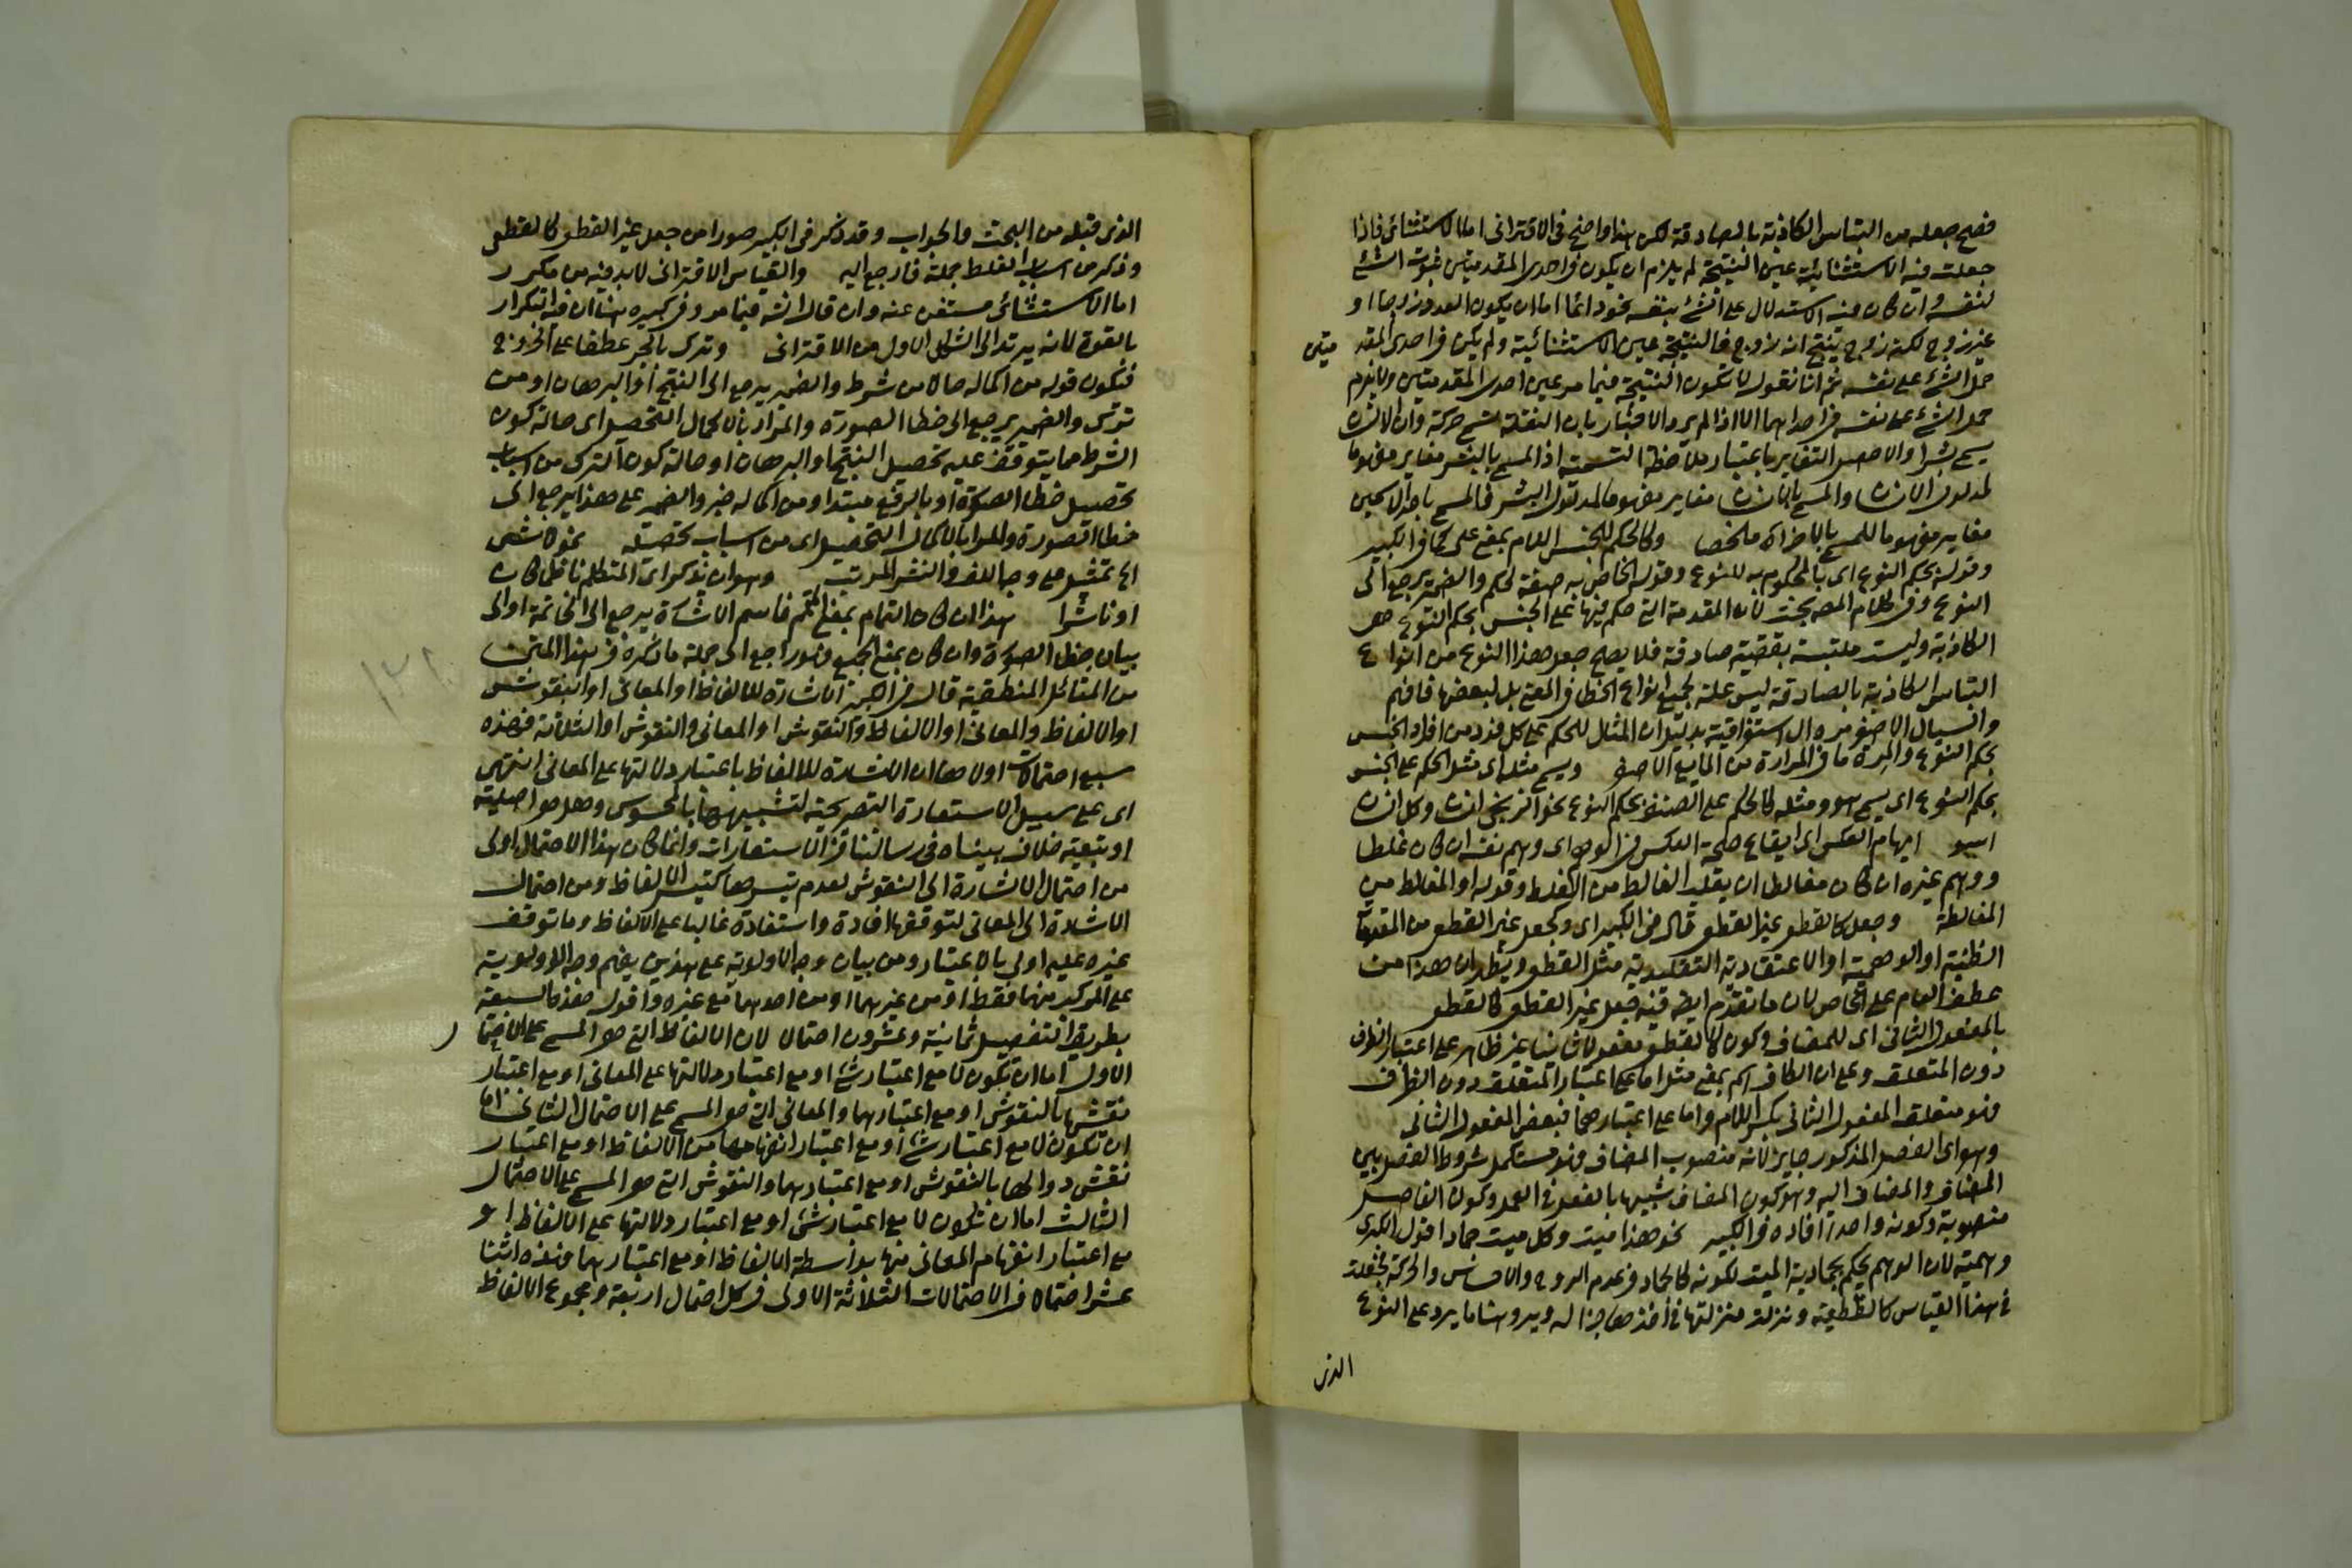 فصح جعله من التباس الكاذبة بالصادقة لكن هذا واضح فى الاقترانى اما الاستثنائى فاذا
جعلت فيه الاستثنائية عين النتيجة لم يلزم ان يكون فى احدى المقدمتين ثبوت الشئ
لنفسه وان كان فيه الاستدلال على الشئ بنفسه نحو دائما اما ان يكون العدد زوجا او
غير زوج لكنه زوج ينتج انه زوج فالنتيجة عين الاستثنائية ولم يكن فى احدى المقد متين
حمل الشئ على نفسه ثم انا نقول لا تكون النتيجة فيما مر عين احدى المقدمتين ولا يلزم
حمل الشئ على نفسه فى احداهما الا اذا لم يرد الاخبار بان النقلة تسمى حركة وان الانسان
يسمى بشرا والا حصل التغاير باعتبار ملاحظة التسمية اذ المسمى بالبشر مغاير مفهوما
لمدلول الانسان والمسمى بالانسان مغاير مفهوما لمدلول البشر فالمسمى باحد الاسمين
مغاير مفهوما للمسمى بالاخر اه ملخصا وكالحكم للجنس اللام بمعنى على كما فى الكبير
وقوله بحكم النوع اى بالمحكوم به للنوع وقوله الخاص به صفة لحكم والضمير يرجع الى
النوع وفى كلام المص بحث لان المقدمة التى حكم فيها على الجنس بحكم النوع هى
الكاذبة وليست ملتبسة بقضية صادقة فلا يصح جعل هذا النوع من انواع
التباس الكاذبة بالصادقة ليس علة لجميع انواع الخطا فى المعنى بل لبعضها فافهم
والسيال الاصفر مره ال استغراقية بدليل ان المثال للحكم على كل فرد من افراد الجنس
بحكم النوع والمرة ما فى المرارة من المايع الاصفر ويسمى مثل اى مثل الحكم على الجنس
بحكم النوع اى يسمى هو ومثله كالحكم على الصنف بحكم النوع نحو الزنجى انسان وكل انسان
اسود ايهام العكس اى ايقاع صحة العكس فى الوهم اى وهم نفسه ان كان غلطا
ووهم غيره ان كان مغالطا ان يقلد الغالط من الغلط وقوله او المغالط من
المغالطة وجعل كالقطعى غير القطعى قال فى الكبير اى وكجعل غير القطعى من المقدمات
الظنية او الوهمية او الاعتقادية التقليدية مثل القطعى ويظهر ان هذا من
عطف العام على الخاص لان ما تقدم ايضا فيه جعل غير القطعى كالقطعى
بالمفعول الثانى اى للمضاف وكون كالقطعى مفعولا ثانيا غير ظاهر على اعتبار الظرف
دون المتعلق وعلى ان الكاف اسم بمعنى مثل اما على اعتبار المتعلق دون الظرف
فهو متعلق المفعول الثانى بكسر اللام واما على اعتبارهما فبعض المفعول الثانى
وهو اى الفصل المذكور جايز لانه منصوب المضاف فهو مستكمل شروط الفصل بين
المضاف والمضاف اليه وهو كون المضاف شبيها بالفعل فى العمل وكون الفاصل
منصوبه وكونه واحدا افاده فى الكبير نحو هذا ميت وكل ميت جماد اقول الكبرى
وهمية لان الوهم يحكم بجمادية الميت لكونه كالجماد فى عدم الروح والاحساس والحركة فجعلت
فى هذا القياس كالقطعية ونزلت منزلتها فى اخذها جزا له ويرد هنا ما يرد على النوع
الذى
الذى قبله من البحث والجواب وقد ذكر فى الكبير صورا من جعل غير القطعى كالقطعى
وذكر من اسباب الغلط جملة فارجع اليه والقياس الاقترانى لابد فيه من مكرر
اما الاستثنائى مستغن عنه وان قال الش فيما مر وفى كبيره هنا ان فيه التكرار
بالقوة لانه يرتد الى الشكل الاول من الاقترانى وترك بالجر عطفا على الخروج
فيكون قوله من اكماله حالا من شرط والضمير يرجع الى النتج او البرهان او من
ترك والضمير يرجع الى خطا الصورة والمراد بالاكمال التحصيل اى حالة كون
الشرط مما يتوقف عليه تحصيل النتج او البرهان او حالة كون الترك من اسباب
تحصيل خطا الصورة او بالرفع مبتدا ومن اكماله خبر والضمير على هذا يرجع الى
خطا الصورة والمراد بالاكمال التحصيل اى من اسباب تحصيله نحو لا شئ
اه تمثيل على وجه اللف والنشر المرتب وهو ان يذكر اى المتكلم ناظما كان
او ناثرا هذا ان كان التمام بمعنى المتمم فاسم الاشارة يرجع الى الخاتمة او الى
بيان خطا الصورة وان كان بمعنى الجميع فهو راجع الى جملة ما ذكره فى هذا المتن
من المسائل المنطقية قال فى الكبير الاشارة للالفاظ او المعانى او النقوش
او الالفاظ والمعانى او الالفاظ والنقوش او المعانى والنقوش او الثلاثة فهذه
سبع احتمالات اولاها ان الاشارة للالفاظ باعتبار دلالتها على المعانى انتهى
اى على سبيل الاستعارة التصريحية لتشبيهها بالمحسوس وهل هو اصلية
او تبعية خلاف بيناه فى رسالتنا فى الاستعارات وانما كان هذا الاحتمال اولى
من احتمال الاشارة الى النقوش لعدم تيسرها كتيسر الالفاظ ومن احتمال
الاشارة الى المعانى لتوقفها افادة واستفادة غالبا على الالفاظ وما توقف
غيره عليه اولى بالاعتبار ومن بيان وجه الاولوية على هذين يفهم وجه الاولوية
على المركب منهما فقط او من غيرهما او من احدهما مع غيره واقول هذه السبعة
بطريق التفصيل ثمانية وعشرون احتمالا لان الالفاظ التى هو المسمى على الاحتما ل
الاول اما ان تكون لا مع اعتبار شئ او مع اعتبار دلالتها على المعانى او مع اعتبار
نقشها بالنقوش او مع اعتبارهما والمعانى التى هو المسمى على الاحتمال الثانى اما
ان تكون لا مع اعتبار شئ او مع اعتبار انفهامها من الالفاظ او مع اعتبار
نقش دوالها بالنقوش او مع اعتبارهما والنقوش التى هو المسمى على الاحتمال
الثالث اما ان تكون لا مع اعتبار شئ او مع اعتبار دلالتها على الالفاظ او
مع اعتبار انفهام المعانى منها بواسطة الالفاظ او مع اعتبارهما فهذه اثنا
عشر احتمالا فى الاحتمالات الثلاثة الاولى فى كل احتمال اربعة ومجموع الالفاظ